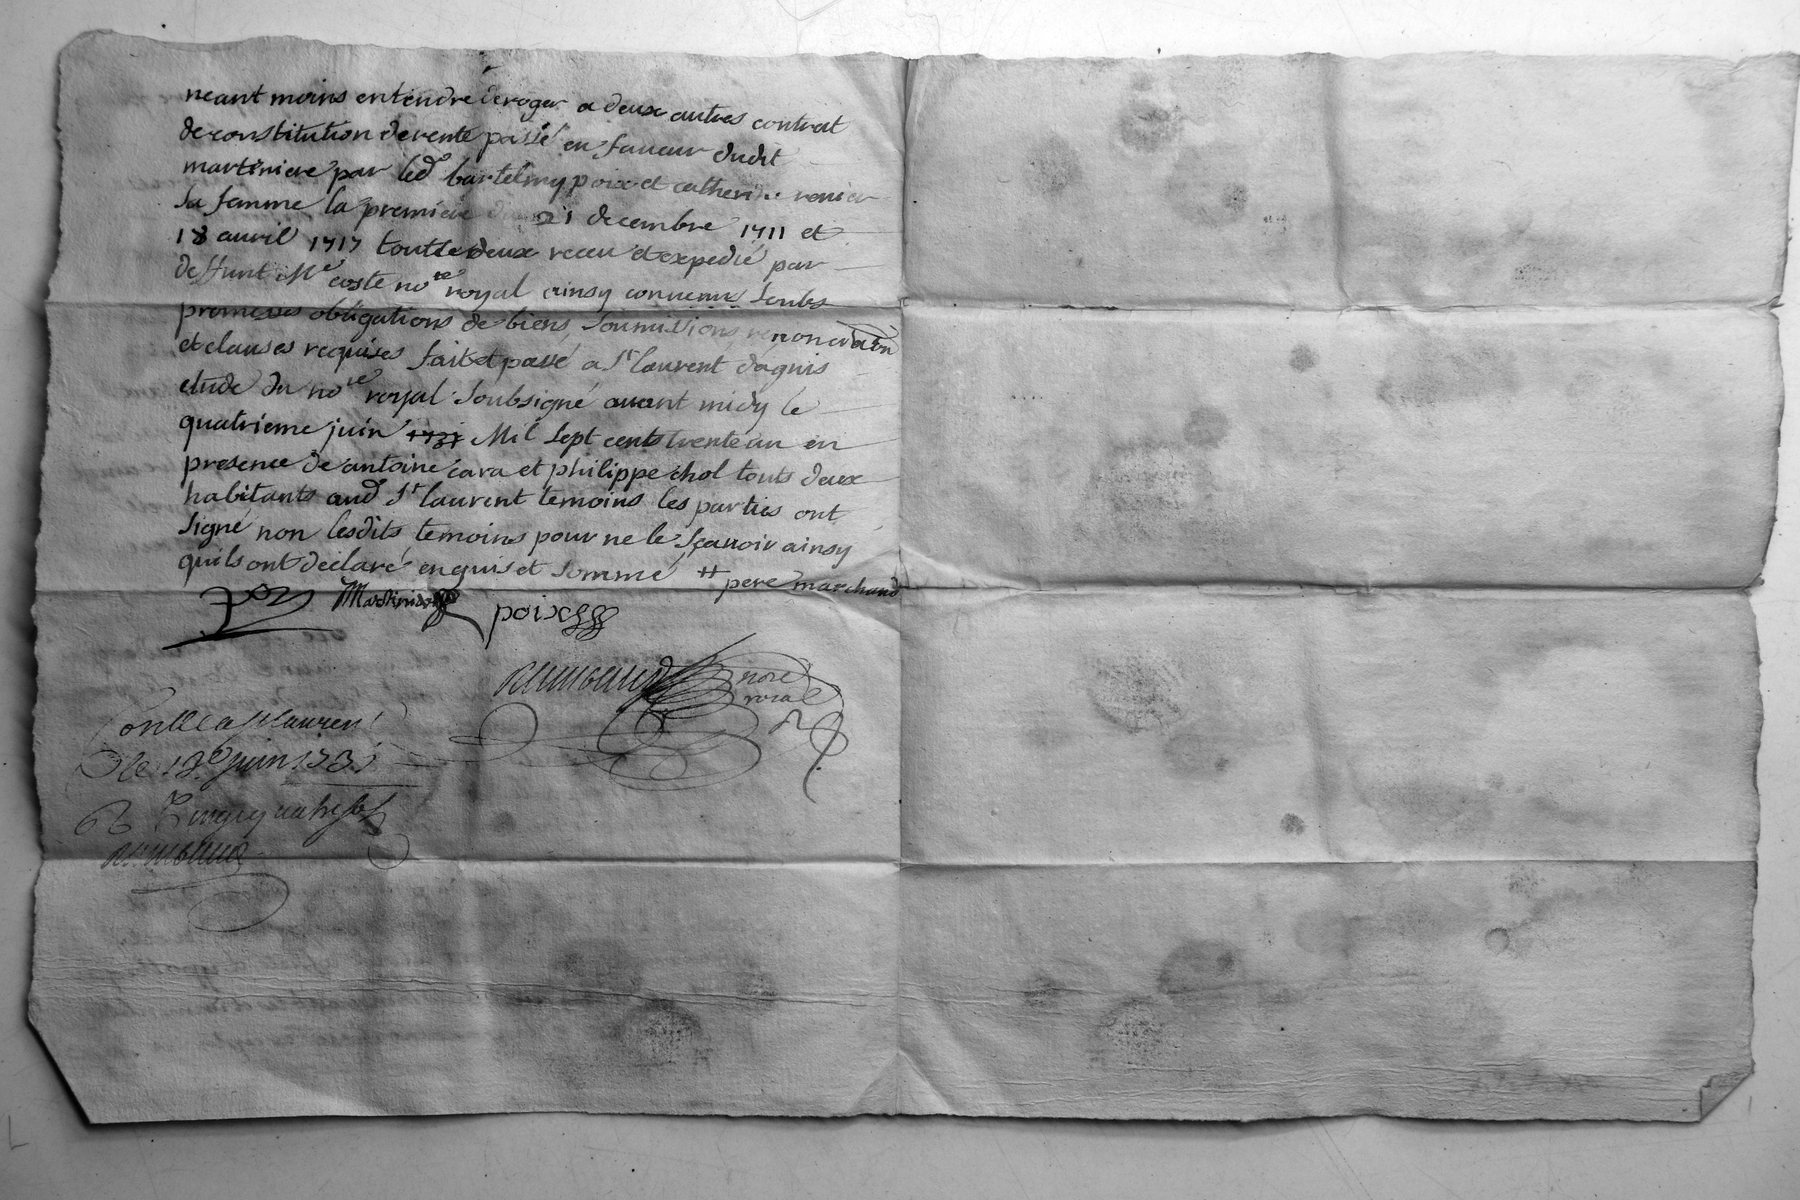 neant moins entendre deroger a deux autres contrat
de constitution de rente passé en faveur dudit
martiniere par led bartelmy poix et catherine
sa femme la premiere du 21 decembre 1711 et
18 avril 1717 toutte deux receu et expedié par
deffunt Me coste nore royal ainsy convenu soubs
promesses obligations de biens soumissions renonciation
et clauses requises fait et passé a St laurent dagnis
etude du nore royal soubsigné avant midy le
quatrieme juin 1731 Mil sept cents trente un en
presence de antoine cara et philippe chol touts deux
habitants aud St laurent temoins les parties ont
signé non lesdits temoins pour ne le sçavoir ainsy
quils ont declaré enquis et sommé ++ pere marchand
Martiniere poix
Raimbaud nore
royal
Conlle a St laurent
le 12e juin 1731
R
Raimbaud